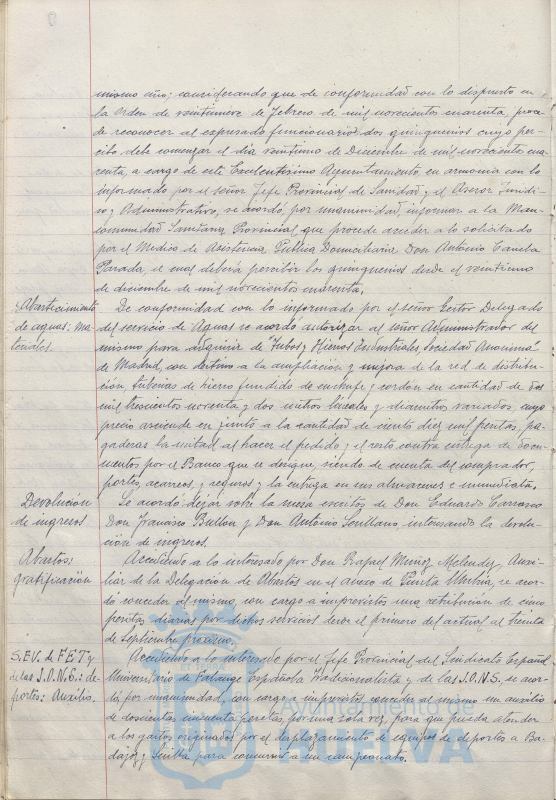 mismo año; considerando que de conformidad con lo dispuesto en
la Orden de veintinueve de Febrero de mil novecientos cuarenta, proce-
de reconocer al expresado funcionario dos quinquenios cuyo per-
cibo debe comenzar el día veintiuno de Diciembre de mil novecientos cua-
renta, a cargo de este Excelentísimo Ayuntamiento, en armonía con lo
informado por el señor Jefe Provincial de Sanidad y el Asesor Jurídi-
co y Administrativo, se acordó por unanimidad, informar a la Man-
comunidad Sanitaria Provincial que procede acceder a lo solicitado
por el Medico de Asistencia Publica Domiciliaria Don Antonio
Parada, el cual deberá percibir los quinquenios desde el veintiuno
de diciembre de mil novecientos cuarenta.
Abastecimiento
de aguas: Ma-
teriales.
De conformidad con lo informado por el señor Gestor Delegado
del servicio de Aguas se acordó autorizar al señor Administrador del
mismo para adquirir de "Tubos y Hierros Industriales, Sociedad Anonima"
de Madrid, con destino a la ampliación y mejora de la red de distribu-
ción, tuberías de hierro fundido de enchufe y cordón en cantidad de dos
mil trescientos noventa y dos metros lineales y diametros variados, cuyo
precio asciende en junto a la cantidad de ciento diez mil pesetas, pa-
gaderas la mitad al hacer el pedido y el resto contra entrega de docu-
mentos por el Banco que se designe, siendo de cuenta del comprador,
portes, acarreos, y seguros y la entrega en sus almacenes e inmediata.
Devolución
de ingresos.
Se acordó dejar sobre la mesa escritos de Don Eduardo Carrasco
Don Francisco Bullon y Don Antonio interesando la devolu-
ción de ingresos.
Abastos:
gratificación
Accediendo a lo interesado por Don Rafael Muñoz Melendez, Auxi-
liar de la Delegacion de Abastos en el anexo de Punta Umbría, se acor-
dó conceder al mismo, con cargo a imprevistos una retribucion de cinco
pesetas diarias por dichos servicios desde el primero del actual al treinta
de Septiembre proximo.
S.E.U. de F.E.T. y
de las J.O.N.S.: de-
portes: Auxilio.
Accediendo a lo interesado por el Jefe Provincial del Sindicato Español
Universitario de Falange Española Tradicionalista y de las J.O.N.S. se acor-
dó, por unanimidad, con cargo a imprevistos conceder al mismo un auxilio
de doscientas cincuenta pesetas por una sola vez, para que pueda atender
a los gastos originados por el desplazamiento de equipos de deportes a Ba-
dajoz y Sevilla para concurrir a un campeonato.
Ayuntamiento de
HUELVA